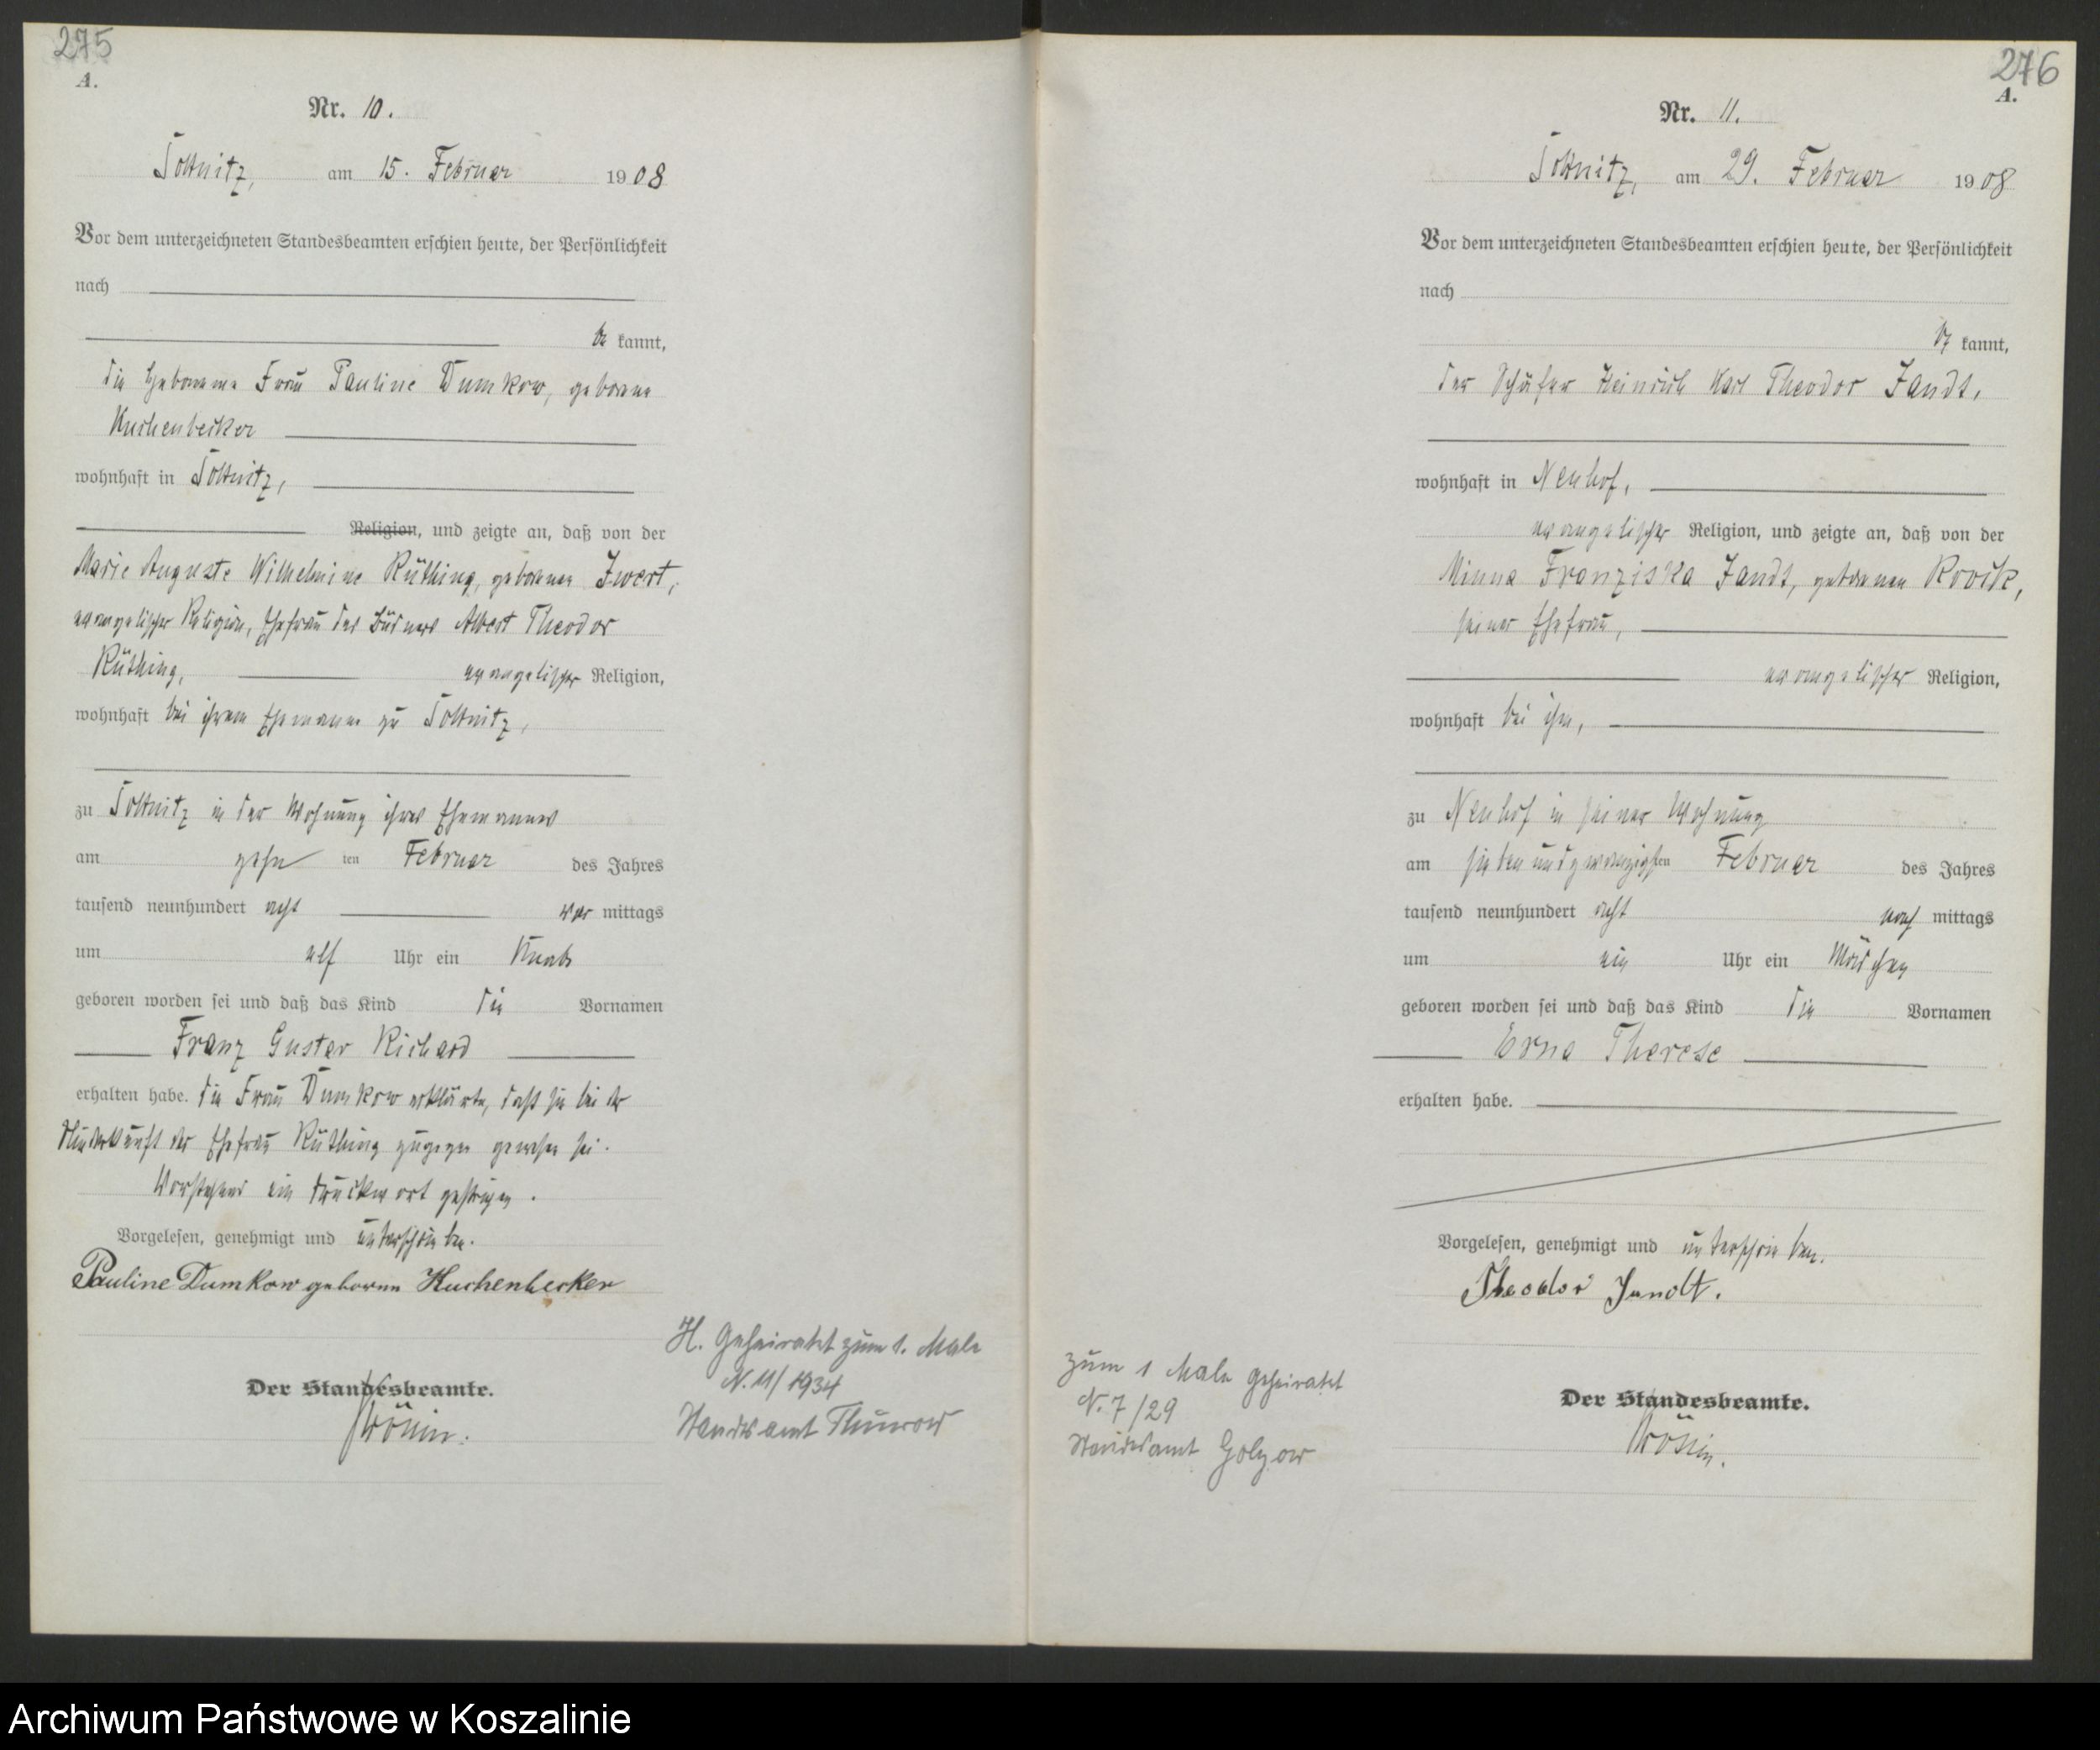 275
A.
Nr. 10.
Soltnitz, am 15. Februar 1908
Vor dem unterzeichneten Standesbeamten erschien heute, der Persönlichkeit
nach
be kannt,
die Hebamme Frau Pauline Dumkow, geborene
Kuchenbecker
wohnhaft in Soltnitz,
Religion, und zeigte an, daß von der
Marie Auguste Wilhelmine Rüthing, geborenen Zwert,
evangelischer Religion, Ehefrau des Büdners Albert Theodor
Rüthing, evangelischer Religion,
wohnhaft bei ihrem Ehemanne zu Soltnitz,
zu Soltnitz in der Wohnung ihres Ehemannes
am zehn ten Februar des Jahres
tausend neunhundert acht vor mittags
um elf Uhr ein Knabe
geboren worden sei und daß das Kind die Vornamen
Franz Gustav Richard
erhalten habe. Die Frau Dumkow erklärte, daß sie bei der
Niederkunft der Ehefrau Rüthing zugegen gewesen sei.
Vorstehend ein Druckwort gestrichen.
Vorgelesen, genehmigt und unterschrieben.
Pauline Dumkow geborene Kuchenbecker
Der Standesbeamte.
H. Geheiratet zum 1. Male
N. 11/1934
Standesamt Thurow
276
A.
Nr. 11.
Soltnitz, am 29. Februar 1908
Vor dem unterzeichneten Standesbeamten erschien heute, der Persönlichkeit
nach
be kannt,
der Schäfer Heinrich Karl Theodor Jandt,
wohnhaft in Neuhof,
evangelischer Religion, und zeigte an, daß von der
Minna Franziska Jandt, geborenen Roock,
seiner Ehefrau,
evangelischer Religion,
wohnhaft bei ihm,
zu Neuhof in seiner Wohnung
am siebenundzwanzigsten Februar des Jahres
tausend neunhundert acht nach mittags
um ein Uhr ein Mädchen
geboren worden sei und daß das Kind die Vornamen
Erna Therese
erhalten habe.
Vorgelesen, genehmigt und unterschrieben.
Theodor Jandt.
Der Standesbeamte.
Zum 1 Male geheiratet
N. 7/29
Standesamt Golzow
Archiwum Państwowe w Koszalinie